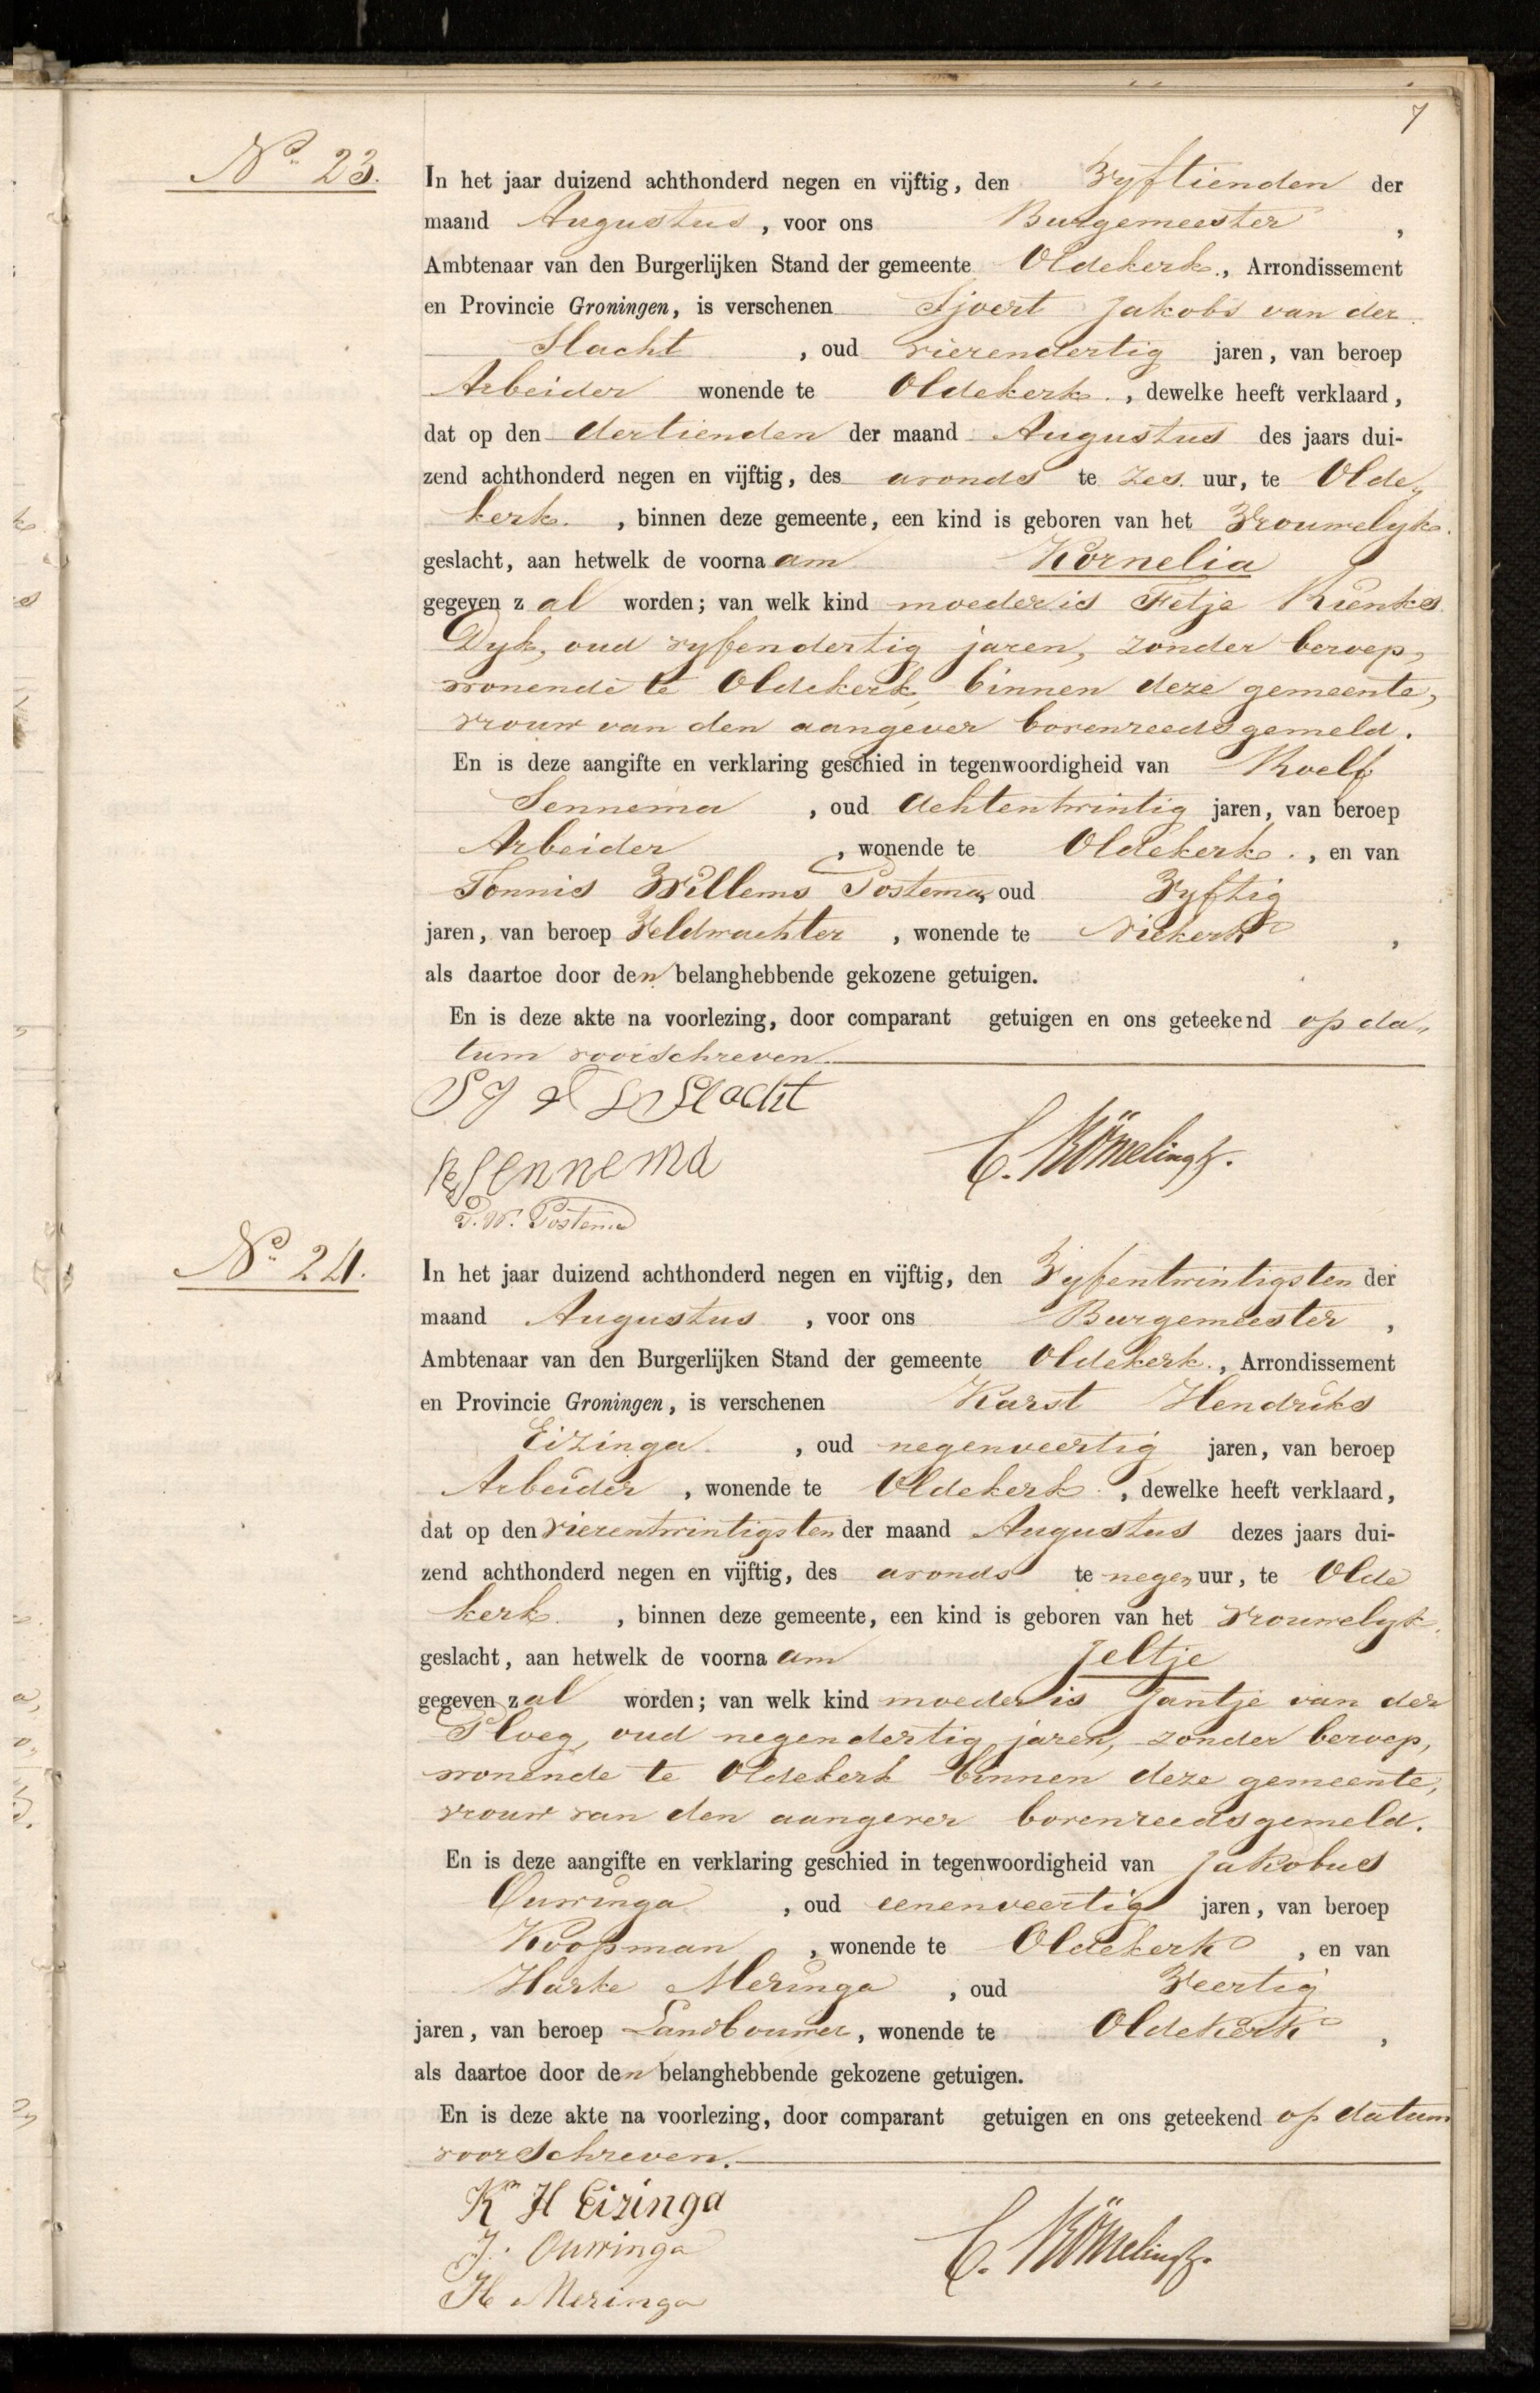 7
No 23.
In het jaar duizend achthonderd negen en vijftig, den Vyftienden der
maand Augustus, voor ons Burgemeester,
Ambtenaar van den Burgerlijken Stand der gemeente Oldekerk., Arrondissement
en Provincie Groningen, is verschenen Sjoert Jakobs van der
Slacht, oud vierendertig jaren, van beroep
Arbeider wonende te Oldekerk., dewelke heeft verklaard,
dat op den dertienden der maand Augustus des jaars dui-
zend achthonderd negen en vijftig, des avonds te zes uur, te Olde,
kerk., binnen deze gemeente, een kind is geboren van het Vrouwelyk.
geslacht, aan hetwelk de voornaam Kornelia
gegeven zal worden; van welk kind moeder is Fetje Rienks
Dyk, oud vyfendertig jaren, zonder beroep,
wonende te Oldekerk, binnen deze gemeente,
vrouw van den aangever bovenreeds gemeld.
En is deze aangifte en verklaring geschied in tegenwoordigheid van Roelf
Sennema, oud Achtentwintig jaren, van beroep
Arbeider, wonende te Oldekerk., en van
Tonnis Willems Postema, oud Vyftig
jaren, van beroep Veldwachter, wonende te Niekerk,
als daartoe door den belanghebbende gekozene getuigen.
En is deze akte na voorlezing, door comparant getuigen en ons geteekend op da,
tum voorschreven.
S J Slacht
R Sennema
C. Römelingh.
T. W. Postema
No 24.
In het jaar duizend achthonderd negen en vijftig, den Vyfentwintigsten der
maand Augustus, voor ons Burgemeester,
Ambtenaar van den Burgerlijken Stand der gemeente Oldekerk., Arrondissement
en Provincie Groningen, is verschenen Karst Hendriks
Eizinga., oud negenveertig jaren, van beroep
Arbeider, wonende te Oldekerk., dewelke heeft verklaard,
dat op den vierentwintigsten der maand Augustus dezes jaars dui-
zend achthonderd negen en vijftig, des avonds te negen uur, te Olde
kerk., binnen deze gemeente, een kind is geboren van het vrouwelyk.
geslacht, aan hetwelk de voornaam Jeltje
gegeven zal worden; van welk kind moeder is Jantje van der
Ploeg, oud negendertig jaren, zonder beroep,
wonende te Oldekerk binnen deze gemeente,
vrouw van den aangever bovenreeds gemeld.
En is deze aangifte en verklaring geschied in tegenwoordigheid van Jakobus
Ouwinga, oud eenenveertig jaren, van beroep
Koopman, wonende te Oldekerk, en van
Harke Meringa, oud Veertig
jaren, van beroep Landbouwer, wonende te Oldekerk,
als daartoe door den belanghebbende gekozene getuigen.
En is deze akte na voorlezing, door comparant getuigen en ons geteekend op datum
voorschreven.
K H Eizinga
J. Ouwinga
C. Römelingh.
H Meringa